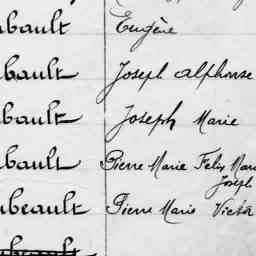 bault Eugène
bault Joseph Alphonse
bault Joseph Marie
bault Pierre Marie Felix Marie
Joseph
beault Pierre Marie Victor
bault